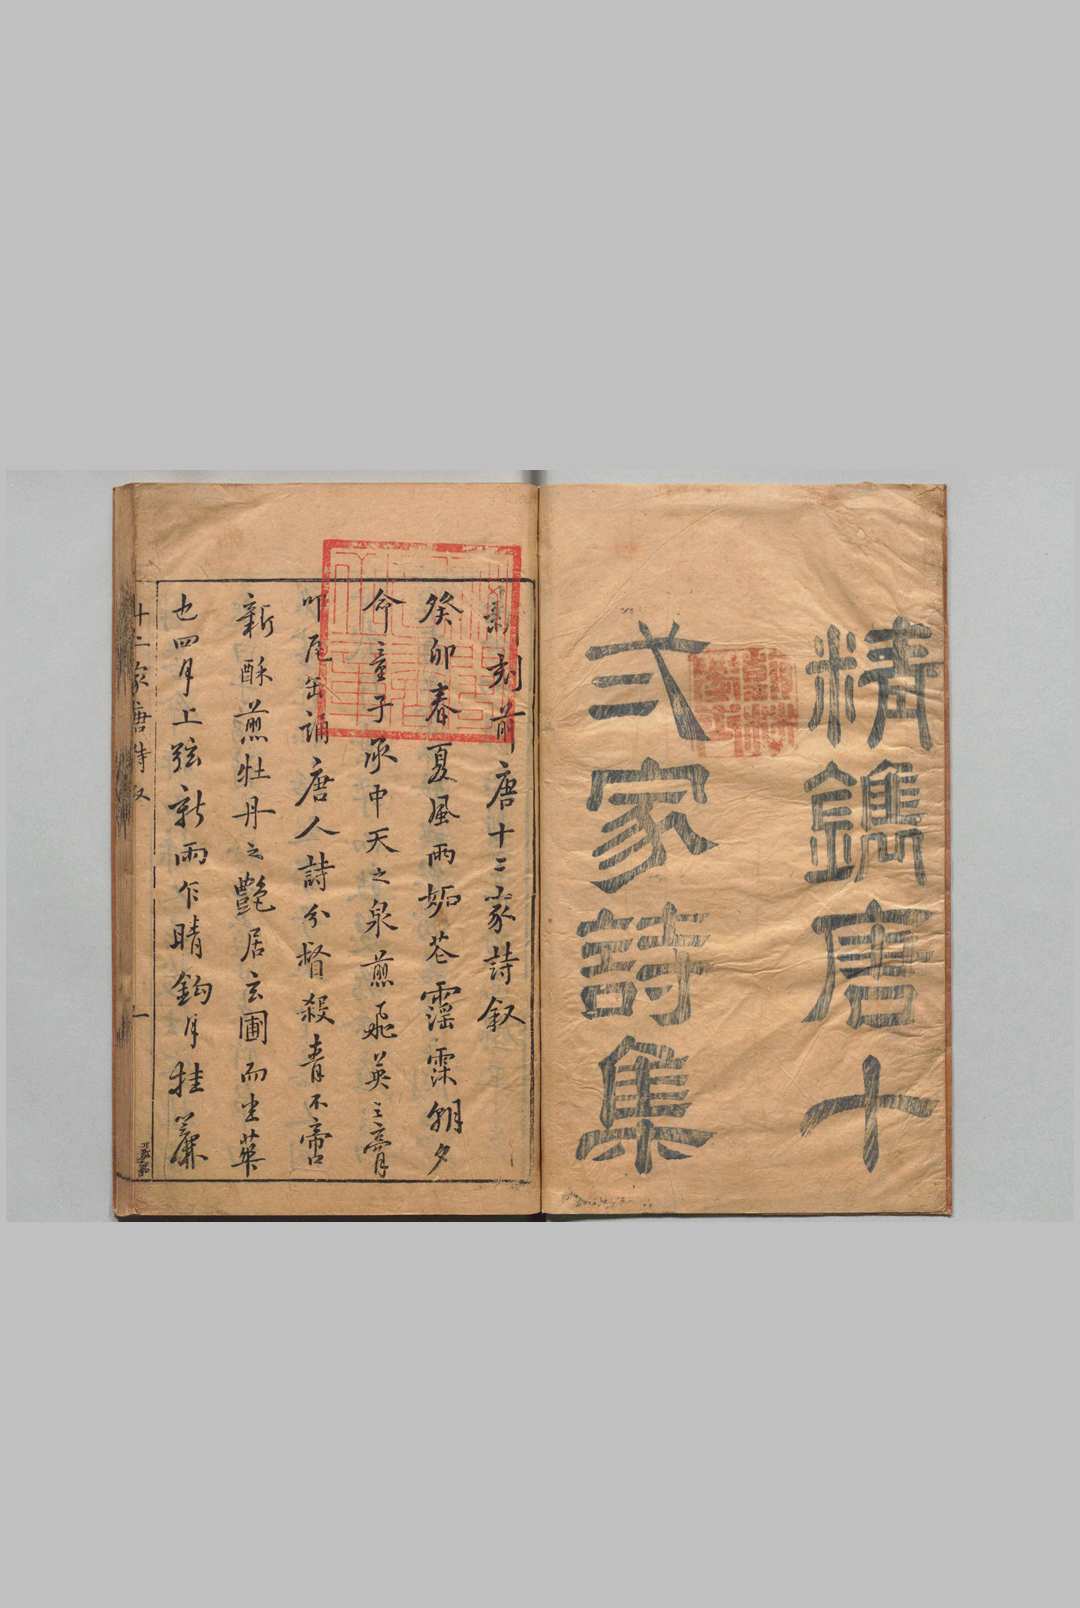 精鐫唐十
弍家詩集
新刻前唐十二家詩叙
癸卯春夏風雨妬花霪霖朝夕
命童子承中天之泉煎飛英之膏
叩瓦缶誦唐人詩分督殺青不啻
新酥煎牡丹之艷居玄圃而坐華
也四月上弦新雨乍晴鈎月挂簾
十二家唐詩叙
一